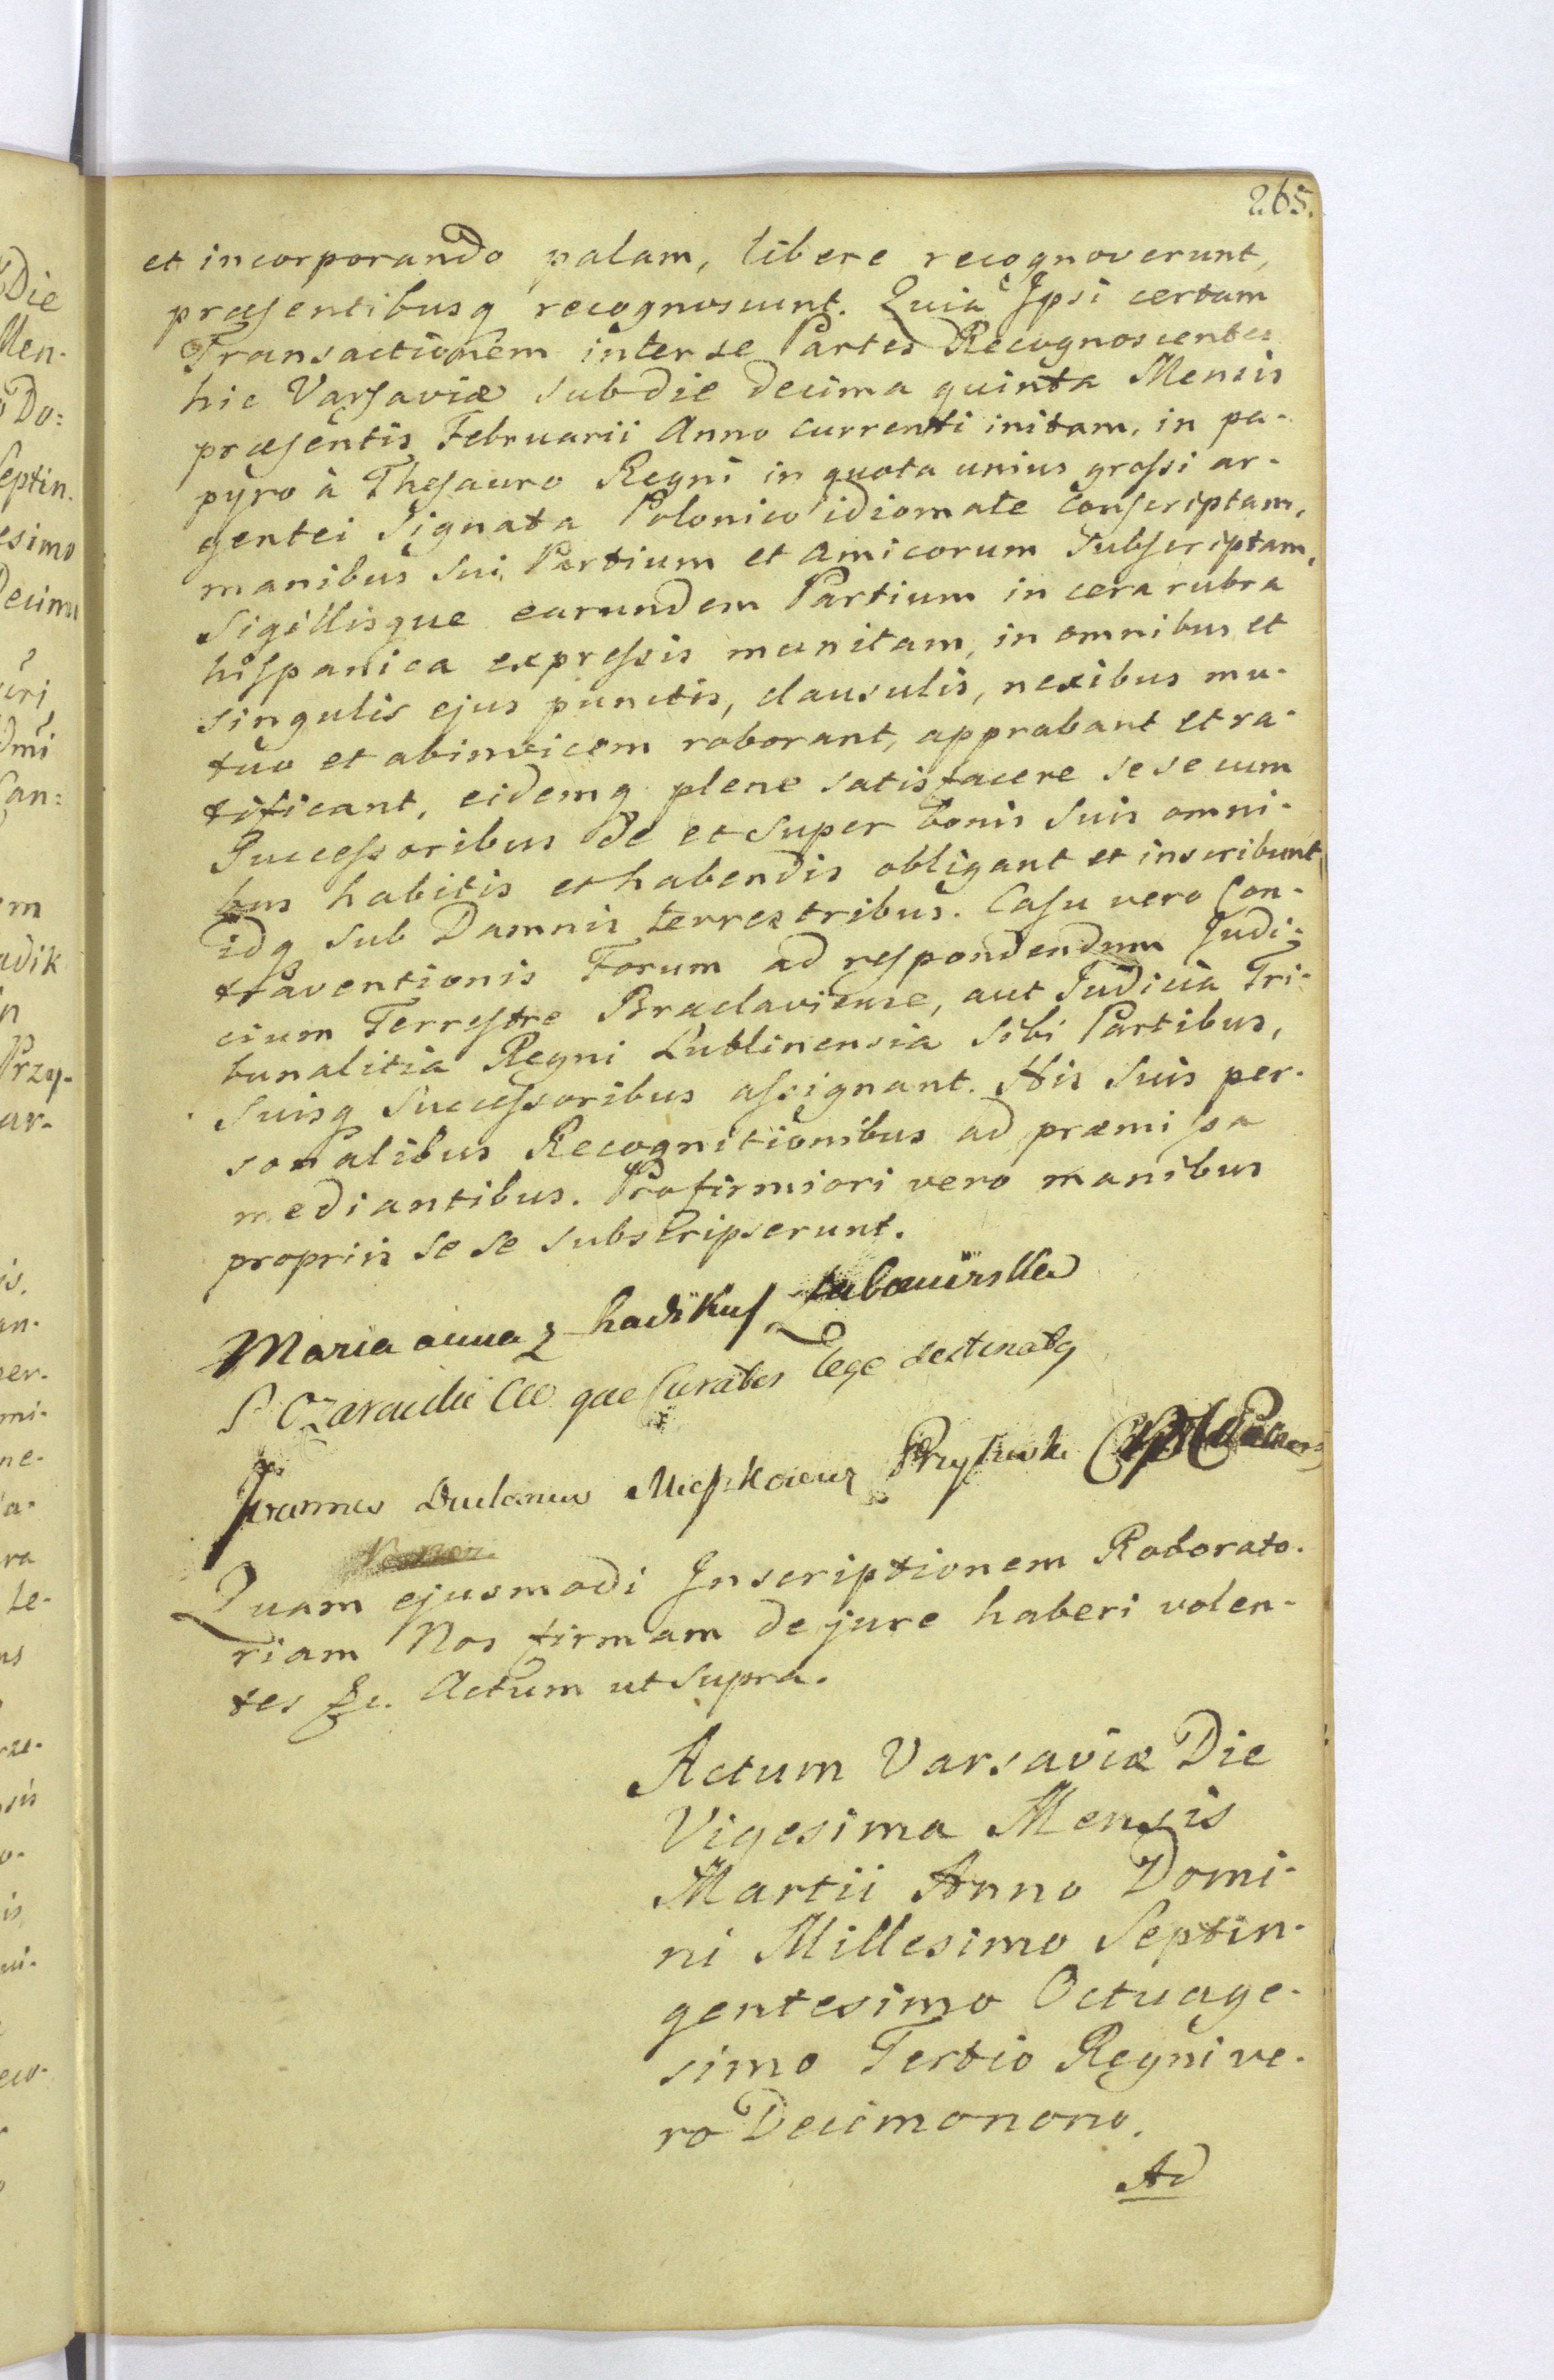 265.
et incorporando palam, libere recognoverunt,
præsentibusq recognoscunt. Quia Ipsi certam
Transactionem inter se Partes Recognoscentes
hic Varsaviæ sub die decima quinta Mensis
præsentis Februarii Anno currenti initam, in pa-
pyro à Thesauro Regni in quota unius grossi ar-
gentei signata Polonico idiomate conscriptam,
manibus sui Partium et amicorum subscriptam,
Sigillisque earundem Partium in cera rubra
hispanica expressis munitam, in omnibus et
singulis ejus punctis, clausulis, nexibus mu-
tuo et abinvicem roborant, approbant et ra-
tificant, eidemq plene satisfacere se se cum
Successoribus de et super bonis suis omni-
bus habitis et habendis obligant et inscribunt
idq sub Damnis terrestribus. Casu vero Con-
traventionis Forum ad respondendum Judi-
cium Terrestre Braclaviense, aut Judicia Tri-
bunalitia Regni Lublinensia sibi Partibus,
suisq Successoribus assignant. His suis per-
sonalibus Recognitionibus ad præmissa
mediantibus. Pro firmiori vero manibus
propriis se se subscripserunt.
Maria anna z hadikuf Lubomirska
Curator lege
Joannes
Quam ejusmodi Inscriptionem Roborato-
riam Nos firmam de jure haberi volen-
tes &c. Actum ut supra.
Actum Varsaviæ Die
Vigesima Mensis
Martii Anno Domi-
ni Millesimo Septin-
gentesimo Octuage-
simo Tertio Regni ve-
ro Decimonono.
Ad